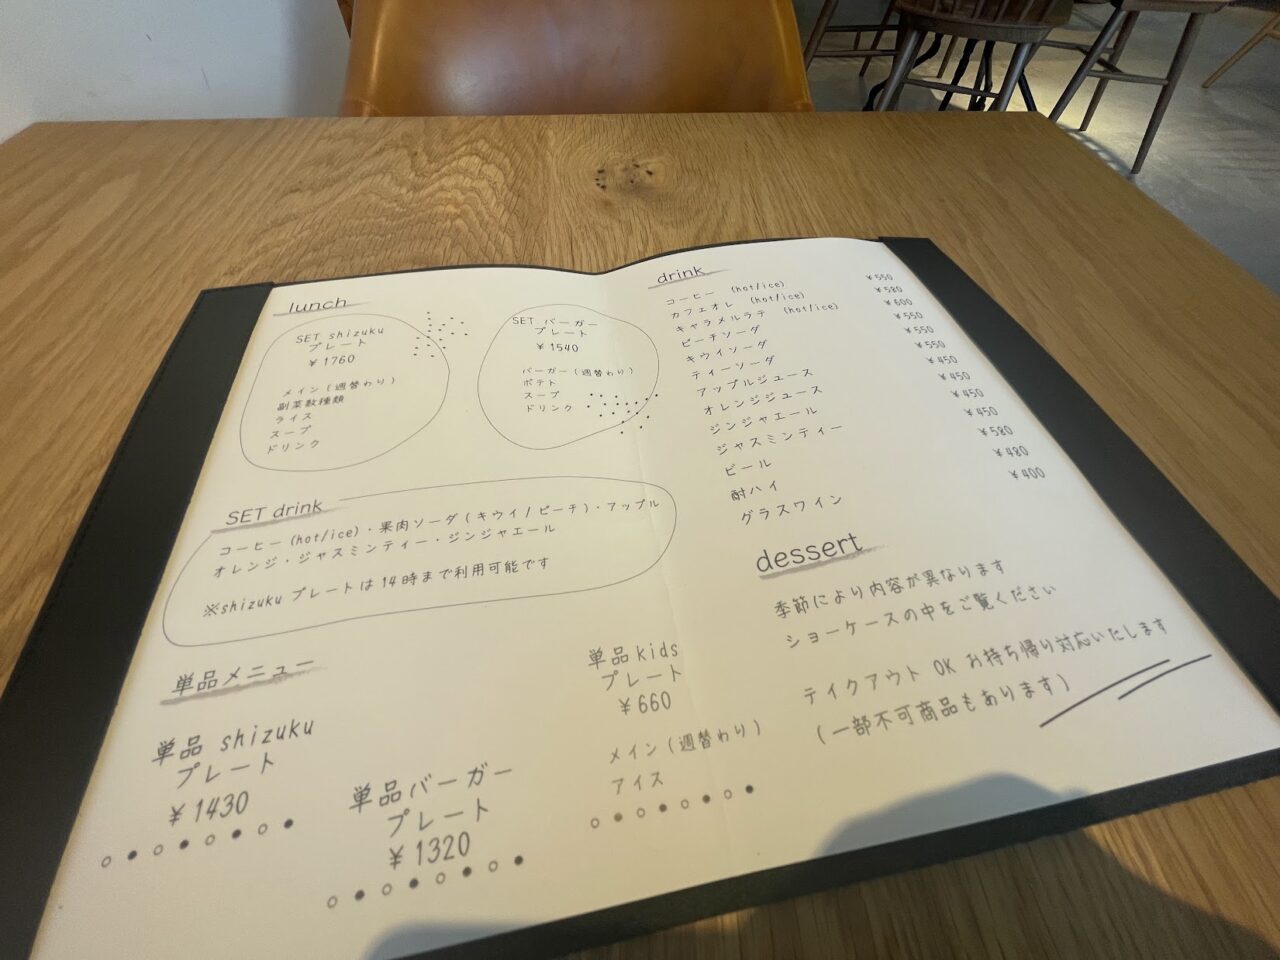 lunch
SET shizuku
プレート
¥1760
メイン(週替わり)
副菜数種類
ライス
スープ
ドリンク
SET バーガー
プレート
¥1540
バーガー(週替わり)
ポテト
スープ
ドリンク
SET drink
コーヒー(hot/ice)・果肉ソーダ(キウイ/ピーチ)・アップル
オレンジ・ジャスミンティー・ジンジャエール
※shizukuプレートは14時まで利用可能です
単品メニュー
単品 shizuku
プレート
¥1430
単品バーガー
プレート
¥1320
単品kids
プレート
¥660
メイン(週替わり)
アイス
drink
コーヒー (hot/ice) ¥550
カフェオレ (hot/ice) ¥580
キャラメルラテ (hot/ice) ¥600
ピーチソーダ ¥550
キウイソーダ ¥550
ティーソーダ ¥550
アップルジュース ¥450
オレンジジュース ¥450
ジンジャエール ¥450
ジャスミンティー ¥450
ビール ¥580
酎ハイ ¥480
グラスワイン ¥400
dessert
季節により内容が異なります
ショーケースの中をご覧ください
テイクアウト OK お持ち帰り対応いたします
(一部不可商品もあります)